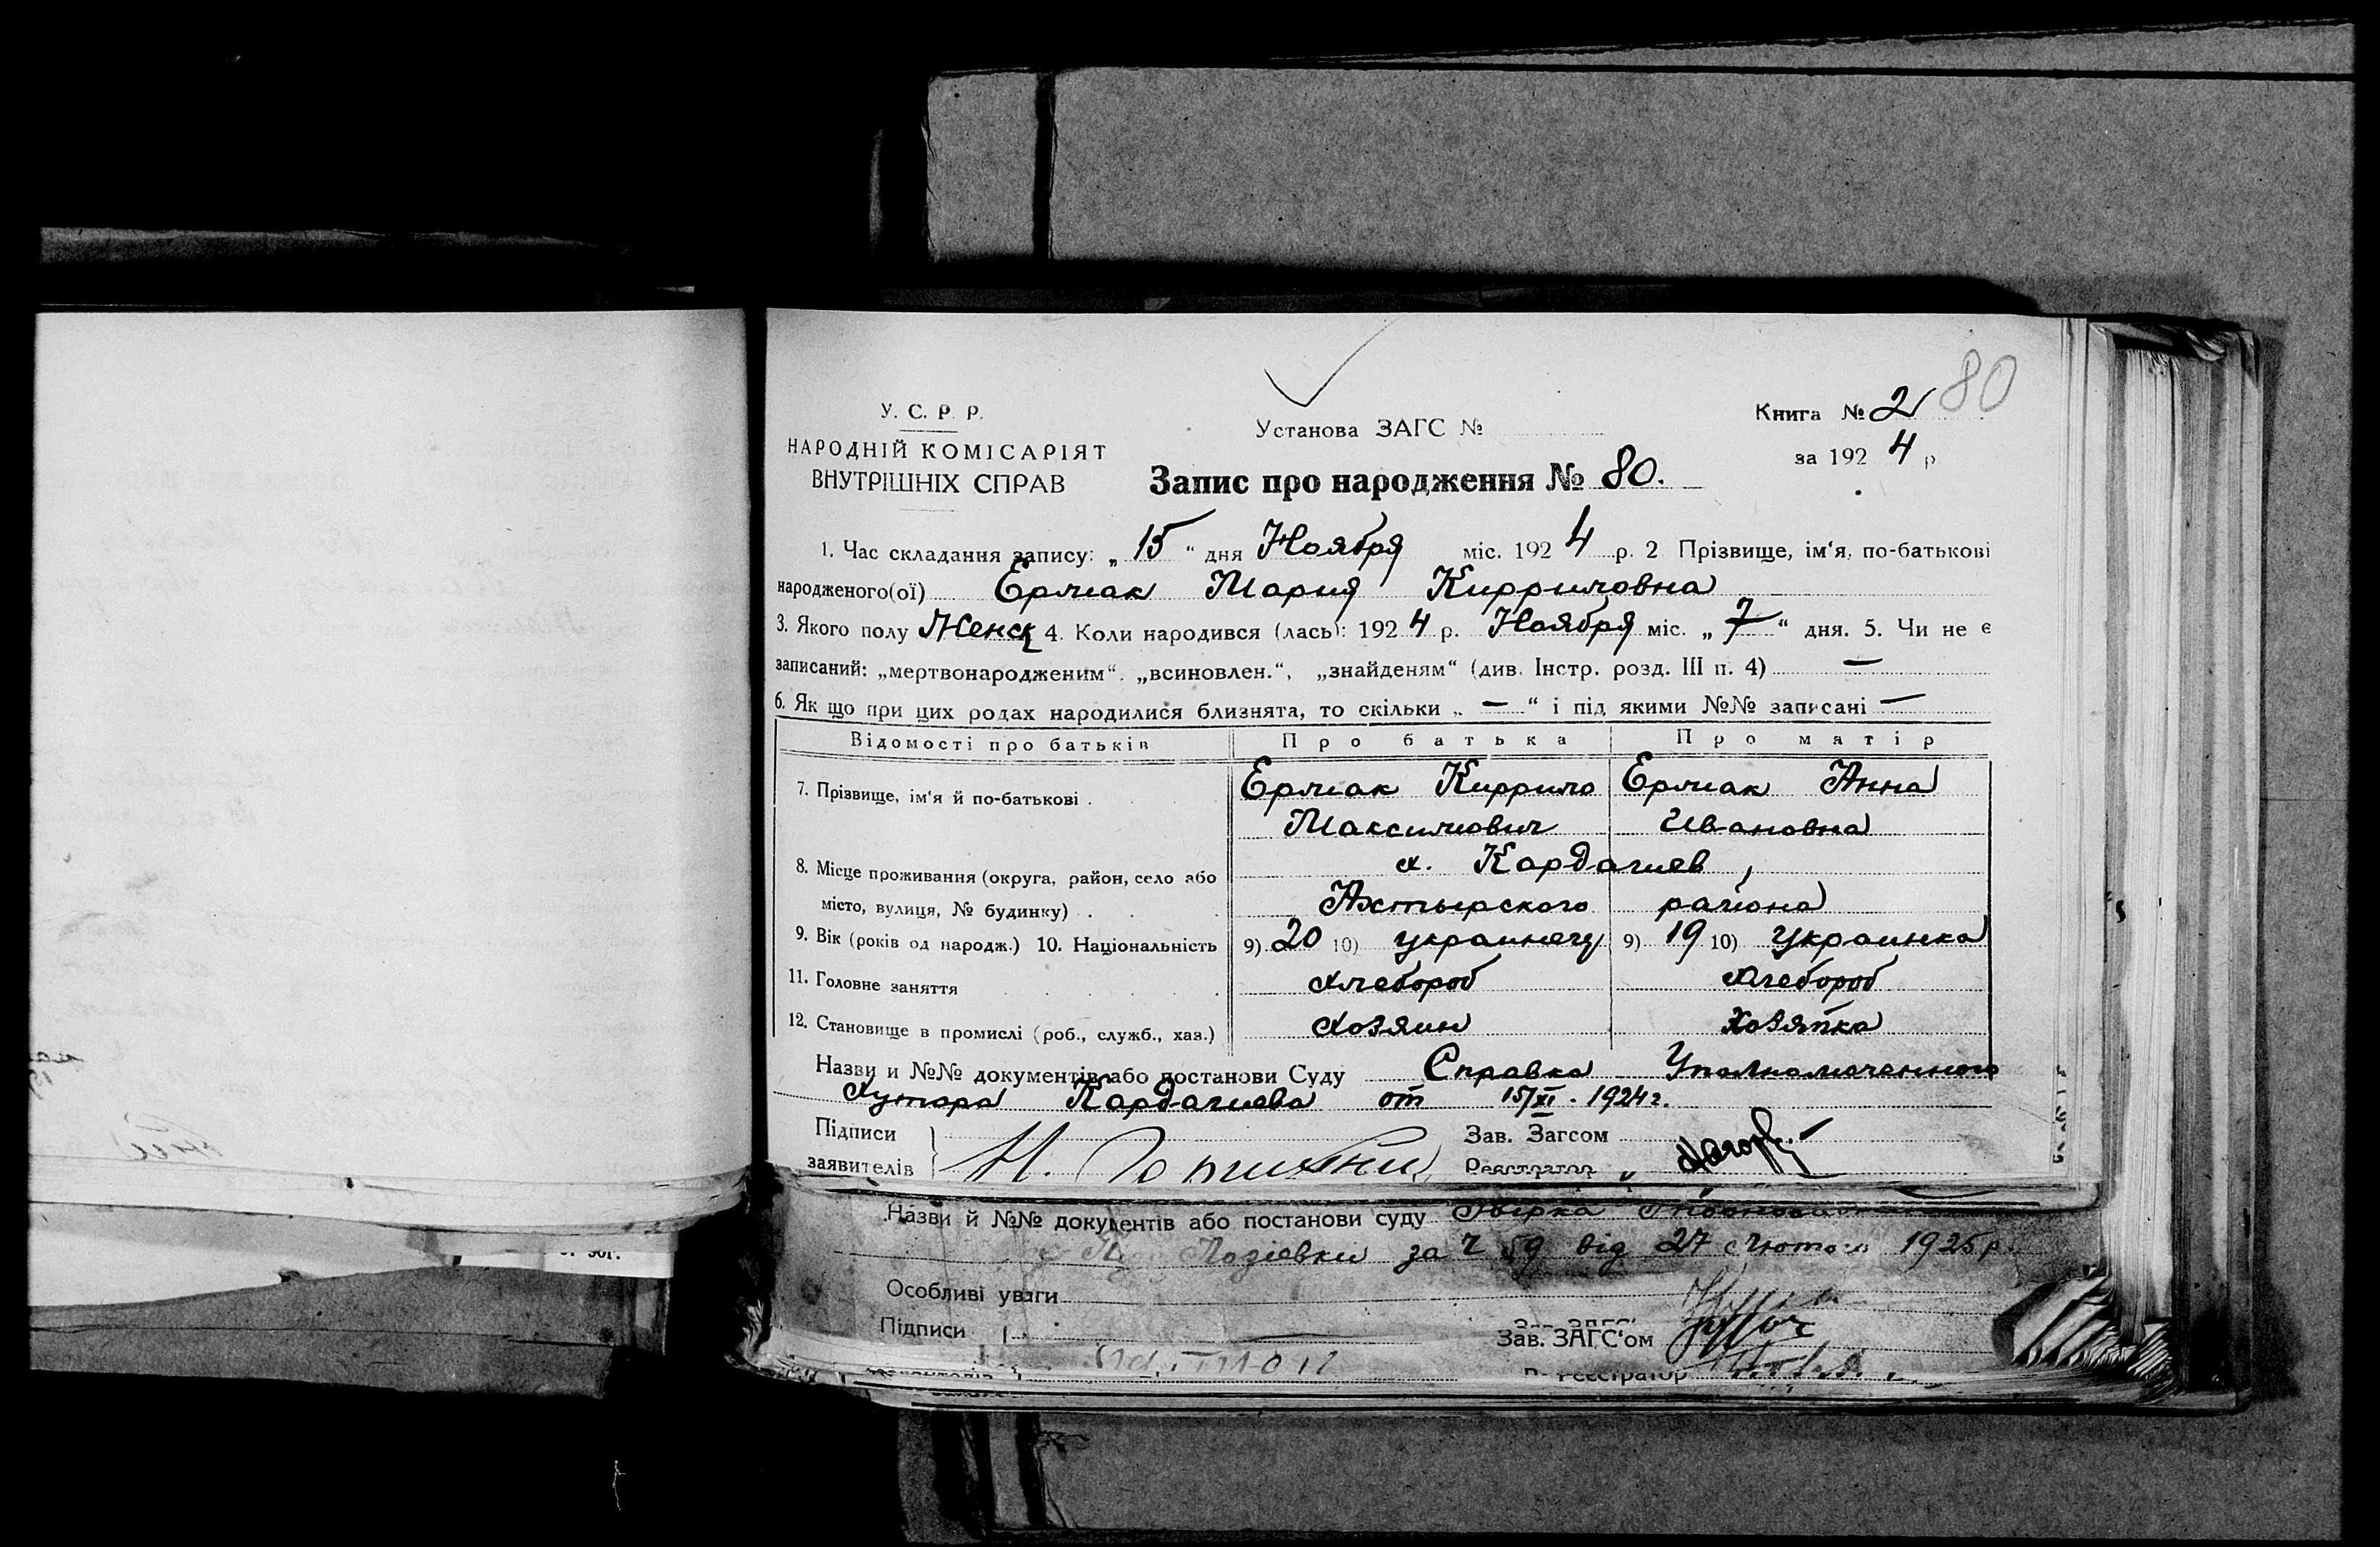 80
У. С. Р. Р.
НАРОДНІЙ КОМІСАРІЯТ
ВНУТРІШНІХ СПРАВ
Установа ЗАГС №
Книга № 2
за 192 4 р
Запис про народження № 80.
1. Час складання запису: „ 15 “ дня Ноября міс. 192 4 р. 2 Прізвище, ім'я, по-батькові
народженого(ої) Ермак Мария Кирриловна
3. Якого полу Женск 4. Коли народився (лась): 192 4 р. Ноября міс. „ 7 “ дня. 5. Чи не є
записаний: „мертвонародженим“. „всиновлен.“, „знайденям“ (див. Інстр. розд. III п. 4) —
6. Як що при цих родах народилися близнята, то скільки „ — “ і під якими №№ записані —
Відомості про батьків Про батька Про матір
7. Прізвище, ім'я й по-батькові . Ермак Киррило Ермак Анна
Максимович Ивановна
8. Місце проживання (округа, район, село або х. Кардашев,
місто, вулиця, № будинку) . Ахтырского района
9. Вік (років од народж.) 10. Національність 9) 20 10) украинец 9) 19 10) украинка
11. Головне заняття Хлебороб Хлебороб
12. Становище в промислі (роб., служб., хаз.) Хозяин Хозяйка
Назви и №№ документів або постанови Суду Справка Уполномоченного
Хутора Кардашева от 15/XI - 1924 г.
Підписи
заявителів
Зав. Загсом
Реєстратор
Назви й №№ документів або постанови суду
Лозівки за Ч 59 від 27 Лютого 1925 р.
Особливі уваги
Підписи
Зав. ЗАГС'ом
Реєстратор